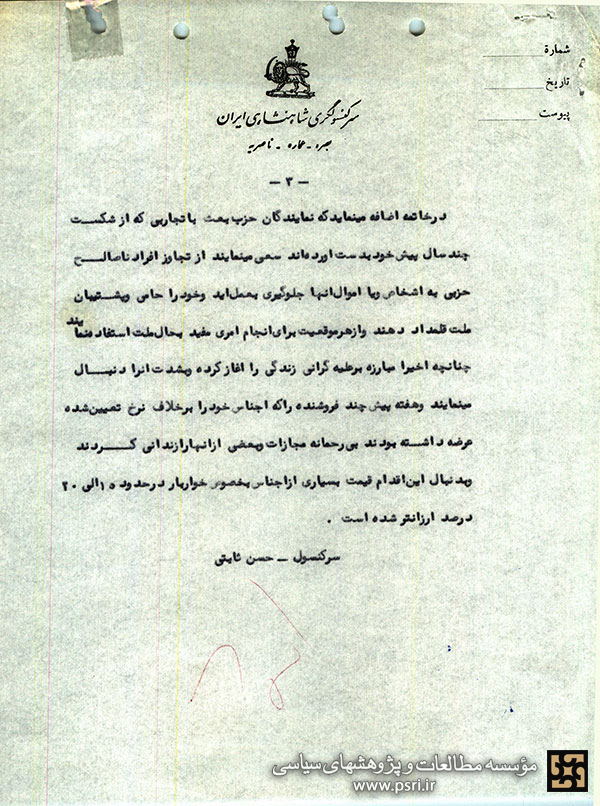 شماره
تاریخ
پیوست
سرکنسولگری شاهنشاهی ایران
بصره - عماره - ناصریه
- ۳ -
درخاتمه اضافه مینماید که نمایندگان حزب بعث با تجاربی که از شکست
چند سال پیش خود بدست اورده‌اند سعی مینمایند از تجاوز افراد ناصالح
حزبی به اشخاص ویا اموال انها جلوگیری بعمل اید وخود را حامی وپشتیبان
ملت قلمداد دهند وازهر موقعیت برای انجام امری مفید بحال ملت استفاده نمایند
چنانچه اخیرا مبارزه برعلیه گرانی زندگی را اغاز کرده وبشدت انرا دنبال
مینمایند وهفته پیش چند فروشنده راکه اجناس خود را برخلاف نرخ تعیین شده
عرضه داشته بودند بی رحمانه مجازات وبعضی از انهارا زندانی کردند
وبدنبال این اقدام قیمت بسیاری از اجناس بخصوص خواربار در حدود ۱۵ الی ۲۰
درصد ارزانتر شده است .
سرکنسول - حسن ثابتی
مؤسسه مطالعات و پژوهشهای سیاسی
www.psri.ir